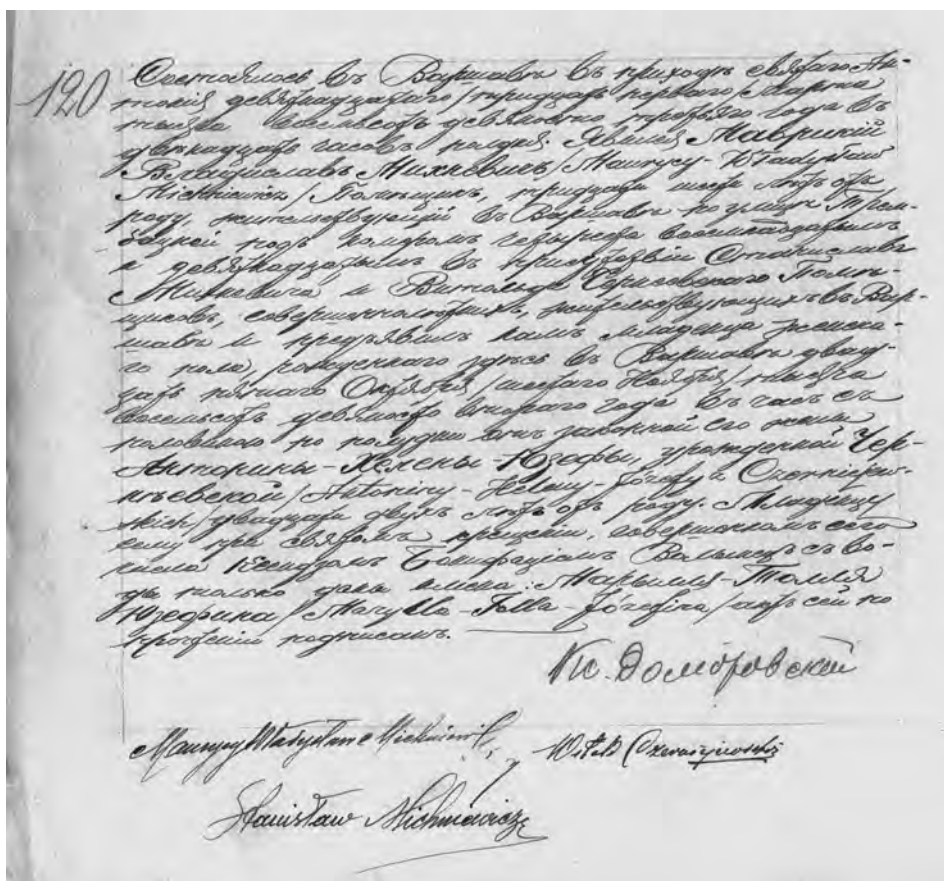 120
Состоялось въ Варшавѣ въ приходѣ святаго Ан-
тонія девятнадцатаго /тридцать перваго/ Марта
тысяча восемьсотъ девяносто третьяго года въ
двѣнадцать часовъ полдня. Явился Маврикій
Владиславъ Михневичъ /Maurycy-Władysław
Michniewicz/ Помѣщикъ, тридцати шести лѣтъ отъ
роду, жительствующій въ Варшавѣ по улицѣ Трем-
бацкой подъ номеромъ четыреста восемнадцатымъ
и девятнадцатымъ въ присутствіи Станислава
Михневича и Витольда Помѣ-
щиковъ, совершеннолѣтнихъ, жительствующихъ въ Вар-
шавѣ и предъявилъ намъ младенца женска-
го пола, рожденнаго здѣсь въ Варшавѣ двад-
цать пятаго Октября /шестаго Ноября/ тысяча
восемьсотъ девяносто втораго года въ часъ съ
половиною по полудни отъ законной его жены
Антонины-Хелены-Юзефы, урожденной Чер-
нѣевской /Antoniny-Heleny-Józefy z Czerniejew-
skich/ двадцати двухъ лѣтъ отъ роду. Младенцу
сему при святомъ крещеніи, совершенномъ сего
числа Ксендзомъ Бонифаціемъ съ во-
ды только даны имена: Марылля-Толля
Юзефина /Marylla-Tolla-Józefina/ актъ сей по
прочтеніи подписанъ.
Кс. Домбровскій
Maurycy Władysław Michniewicz, Witold
Stanisław Michniewicz